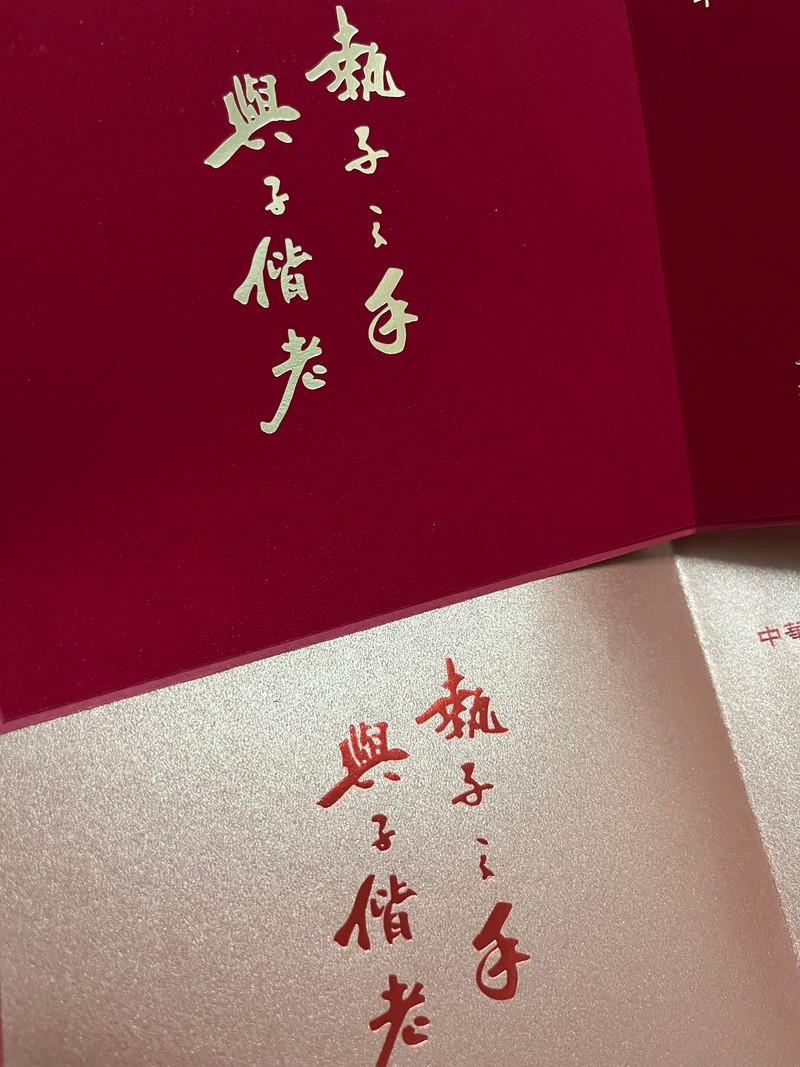 執子之手
與子偕老
執子之手
與子偕老
中華